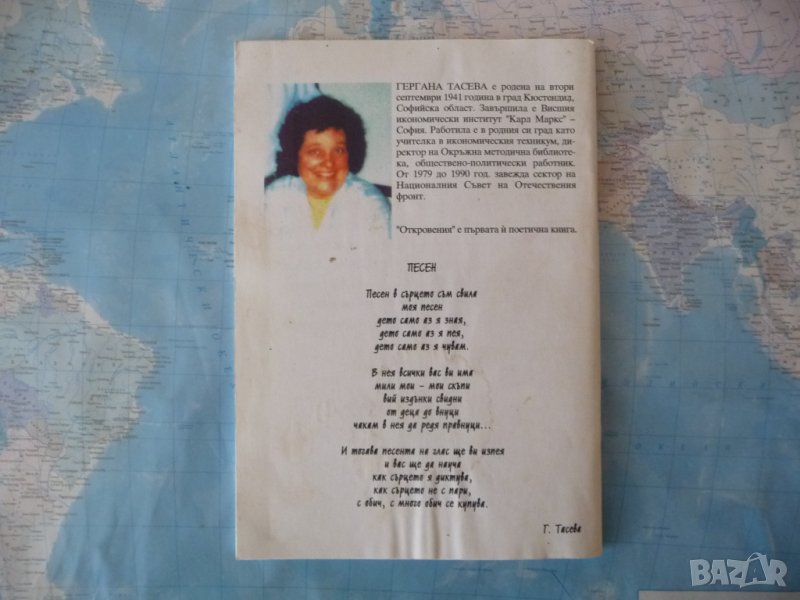 ГЕРГАНА ТАСЕВА е родена на втори
септември 1941 година в град Кюстендид,
Софийска област. Завършила е Висшия
икономически институт "Карл Маркс" –
София. Работила е в родния си град като
учителка в икономическия техникум, ди-
ректор на Окръжна методична библиоте-
ка, обществено-политически работник.
От 1979 до 1990 год. завежда сектор на
Националния Съвет на Отечествения
фронт.
"Откровения" е първата ѝ поетична книга.
ПЕСЕН
Песен в сърцето съм свила
моя песен
дето само аз я зная,
дето само аз я пея,
дето само аз я чувам.
В нея всички вас ви има
мили мои – мои скъпи
вий издънки свидни
от деца до внуци
чакам в нея да редя правнуци...
И тогава песента на глас ще ви изпея
и вас ще да науча
как сърцето я диктува,
как сърцето не с пари,
с обич, с много обич се купува.
Г. Тасева
BAZAR